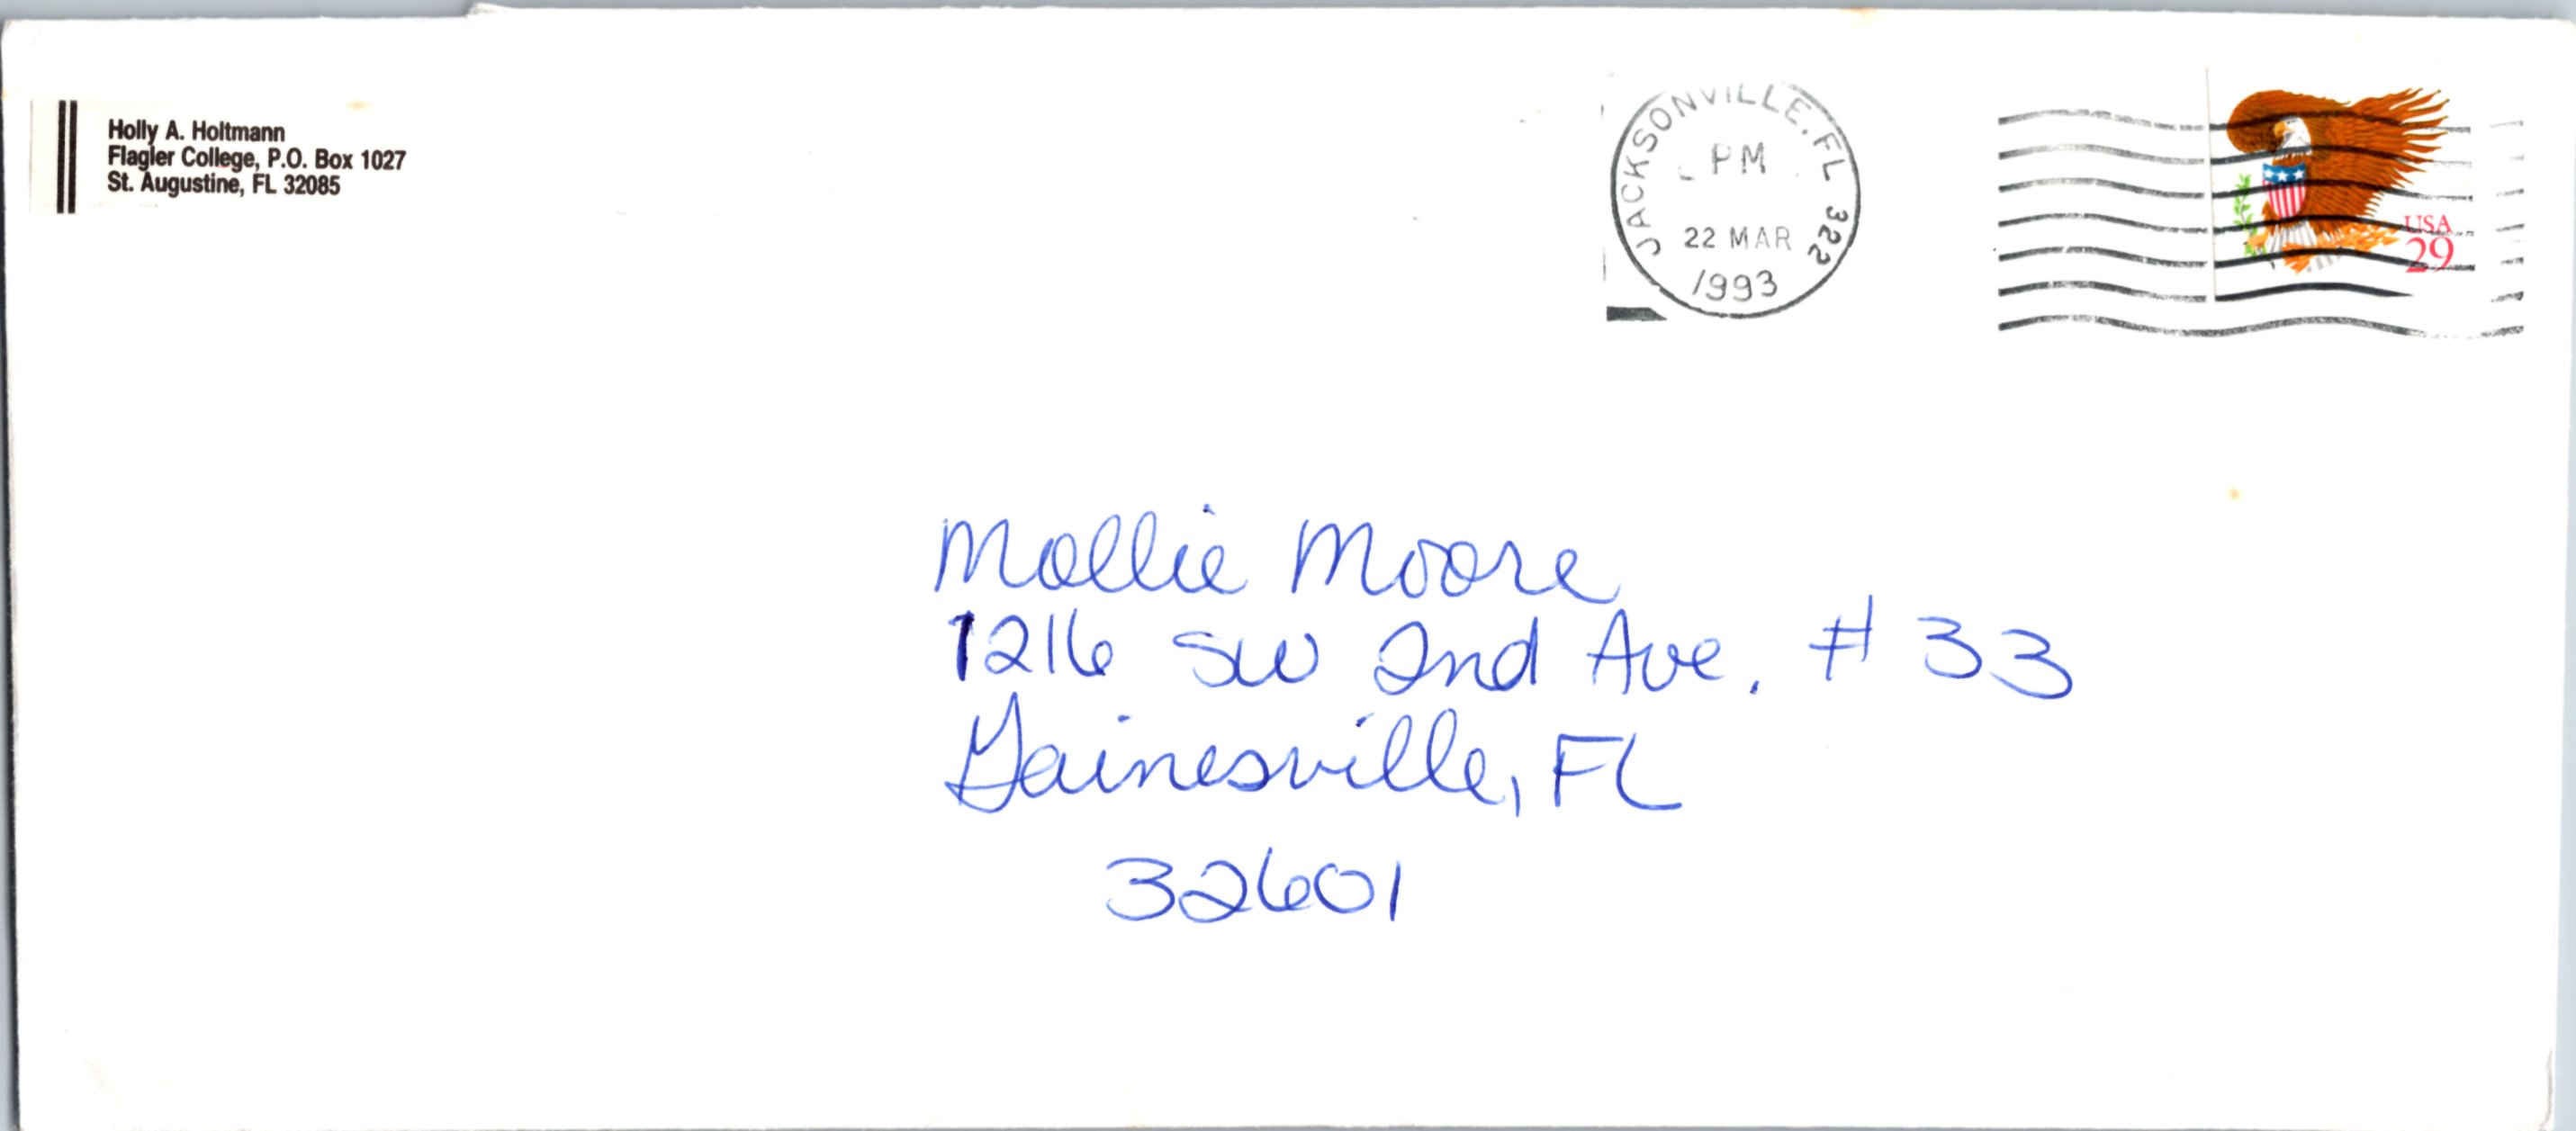 Holly A. Holtmann
Flagler College, P.O. Box 1027
St. Augustine, FL 32085
JACKSONVILLE, FL 322
PM
22 MAR
1993
USA
29
Mollie Moore
1216 SW 2nd Ave. # 33
Gainesville, FL
32601